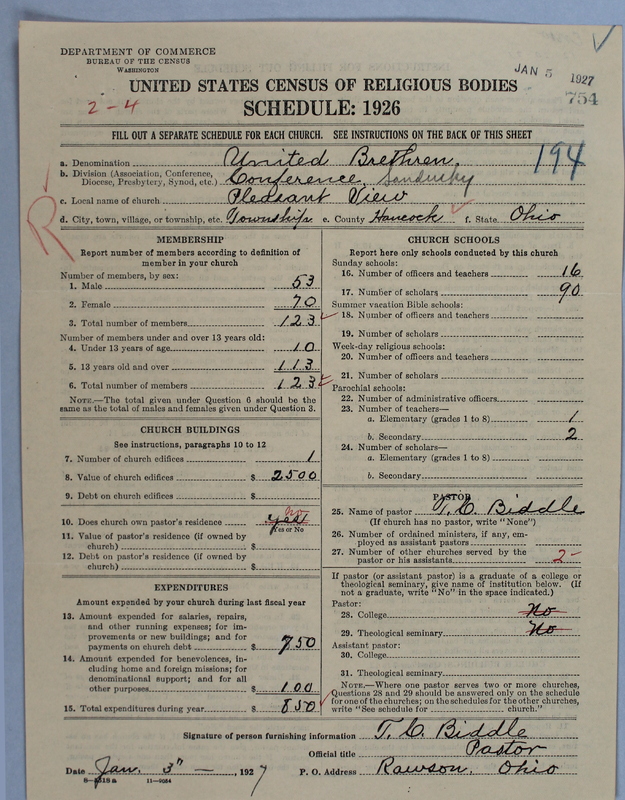 DEPARTMENT OF COMMERCE
BUREAU OF THE CENSUS
WASHINGTON
JAN 5 1927
754
UNITED STATES CENSUS OF RELIGIOUS BODIES
2-4
SCHEDULE: 1926
FILL OUT A SEPARATE SCHEDULE FOR EACH CHURCH. SEE INSTRUCTIONS ON THE BACK OF THIS SHEET
a. Denomination United Brethren. 194
b. Division (Association, Conference, Diocese, Presbytery, Synod, etc.) Conference Sandusky
c. Local name of church Pleasant View
d. City, town, village, or township, etc. Township. e. County Hancock f. State. Ohio
R
MEMBERSHIP
Report number of members according to definition of member in your church
Number of members, by sex:
1. Male 53
2. Female 70
3. Total number of members 123
Number of members under and over 13 years old:
4. Under 13 years of age 10
5. 13 years old and over 113
6. Total number of members 123
NOTE.—The total given under Question 6 should be the
same as the total of males and females given under Question 3.
CHURCH BUILDINGS
See instructions, paragraphs 10 to 12
7. Number of church edifices 1
8. Value of church edifices $ 2500
9. Debt on church edifices $
10. Does church own pastor's residence yes no
Yes or No
11. Value of pastor's residence (if owned by
church) $
12. Debt on pastor's residence (if owned by
church) $
EXPENDITURES
Amount expended by your church during last fiscal year
13. Amount expended for salaries, repairs,
and other running expenses; for im-
provements or new buildings; and for
payments on church debt $ 750
14. Amount expended for benevolences, in-
cluding home and foreign missions; for
denominational support; and for all
other purposes $ 100
15. Total expenditures during year $ 850
CHURCH SCHOOLS
Report here only schools conducted by this church
Sunday schools:
16. Number of officers and teachers 16
17. Number of scholars 90
Summer vacation Bible schools:
18. Number of officers and teachers
19. Number of scholars
Week-day religious schools:
20. Number of officers and teachers
21. Number of scholars
Parochial schools:
22. Number of administrative officers
23. Number of teachers—
a. Elementary (grades 1 to 8) 1
b. Secondary 2
24. Number of scholars—
a. Elementary (grades 1 to 8)
b. Secondary
PASTOR
25. Name of pastor T. C. Biddle
(If church has no pastor, write "None")
26. Number of ordained ministers, if any, em-
ployed as assistant pastors
27. Number of other churches served by the
pastor or his assistants 2-
If pastor (or assistant pastor) is a graduate of a college or
theological seminary, give name of institution below. (If
not a graduate, write "No" in the space indicated.)
Pastor:
28. College No
29. Theological seminary No
Assistant pastor:
30. College
31. Theological seminary
NOTE.—Where one pastor serves two or more churches,
Questions 28 and 29 should be answered only on the schedule
for one of the churches; on the schedules for the other churches,
write "See schedule for church."
Signature of person furnishing information T. C. Biddle
Official title Pastor
Date Jan. 3" —, 1927 P. O. Address Rawson, Ohio
8-5318a 11-9054